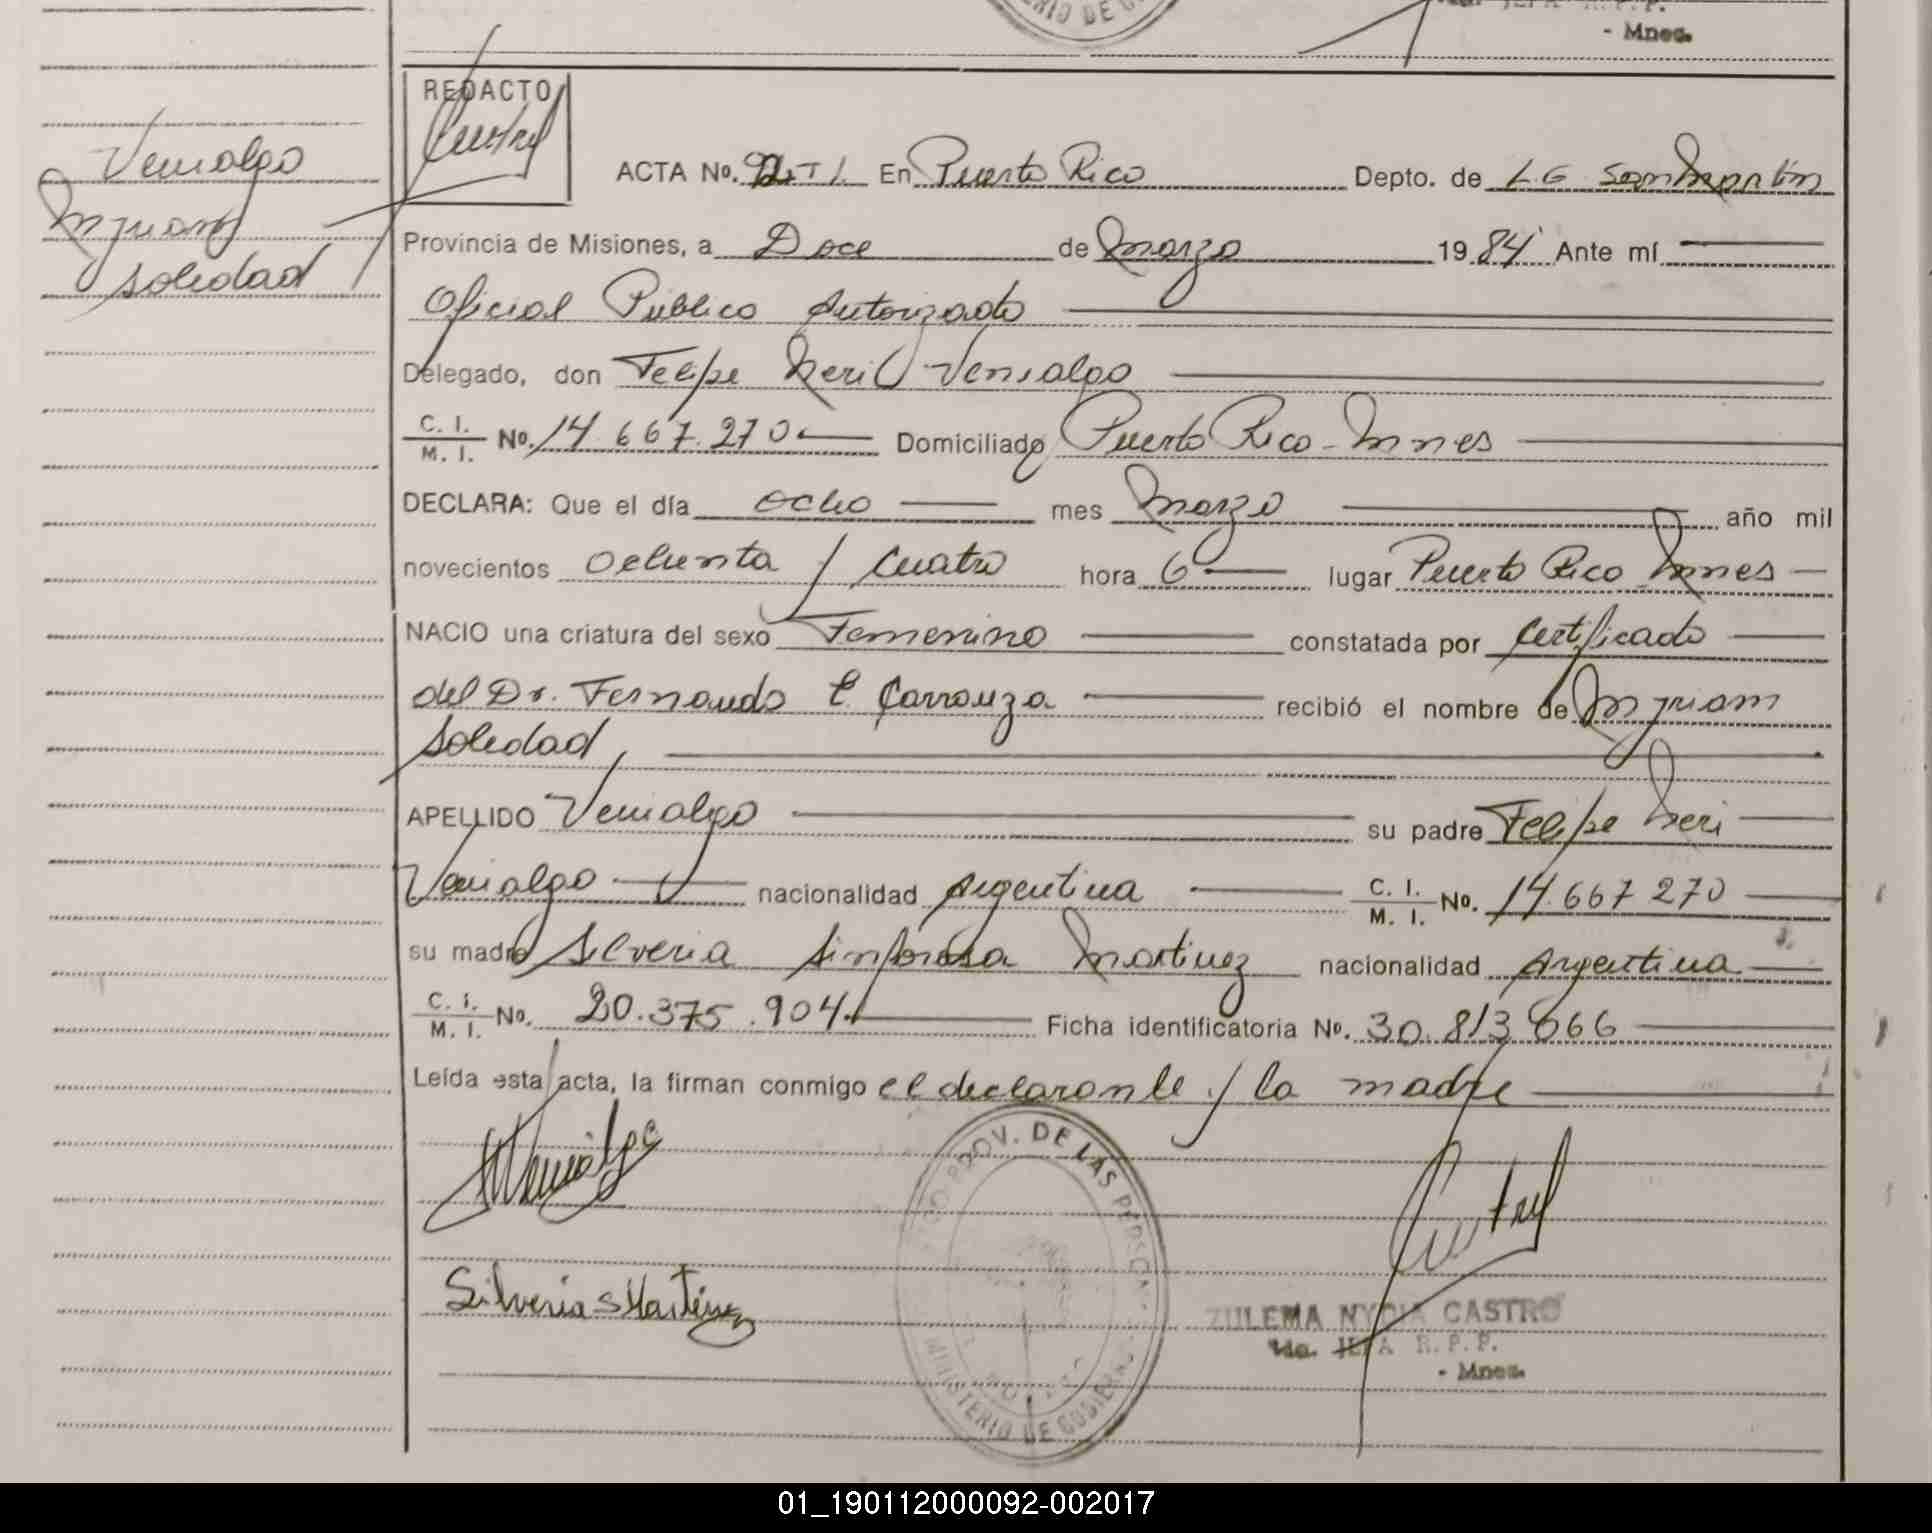 RIO DE
- Mnes.
REDACTO
Venialgo
Myriam
Soledad
ACTA No. 92-T I. En Puerto Rico Depto. de L.G. San Martin
Provincia de Misiones, a Doce de Marzo 1984 Ante mí
Oficial Público Autorizado
Delegado, don Felipe Neri Venialgo
C. I. / M. I. No. 14.667.270 Domiciliado Puerto Rico - Mnes
DECLARA: Que el día ocho mes Marzo año mil
novecientos Ochenta y Cuatro hora 6 lugar Puerto Rico Mnes
NACIO una criatura del sexo Femenino constatada por Certificado
del Dr. Fernando E Carranza recibió el nombre de Myriam
Soledad
APELLIDO Venialgo su padre Felipe Neri
Venialgo nacionalidad Argentina C. I. / M. I. No. 14.667 270
su madre Silveria Sinforosa Martinez nacionalidad Argentina
C. I. / M. I. No. 20.375.904. Ficha identificatoria No. 30.813 066
Leída esta acta, la firman conmigo el declarante y la madre
PROV. DE LAS PERSONAS
MINISTERIO DE GOBIERNO
Silveria S Martinez
ZULEMA NYDIA CASTRO
JEFA R.P.P.
- Mnes.
01_190112000092-002017